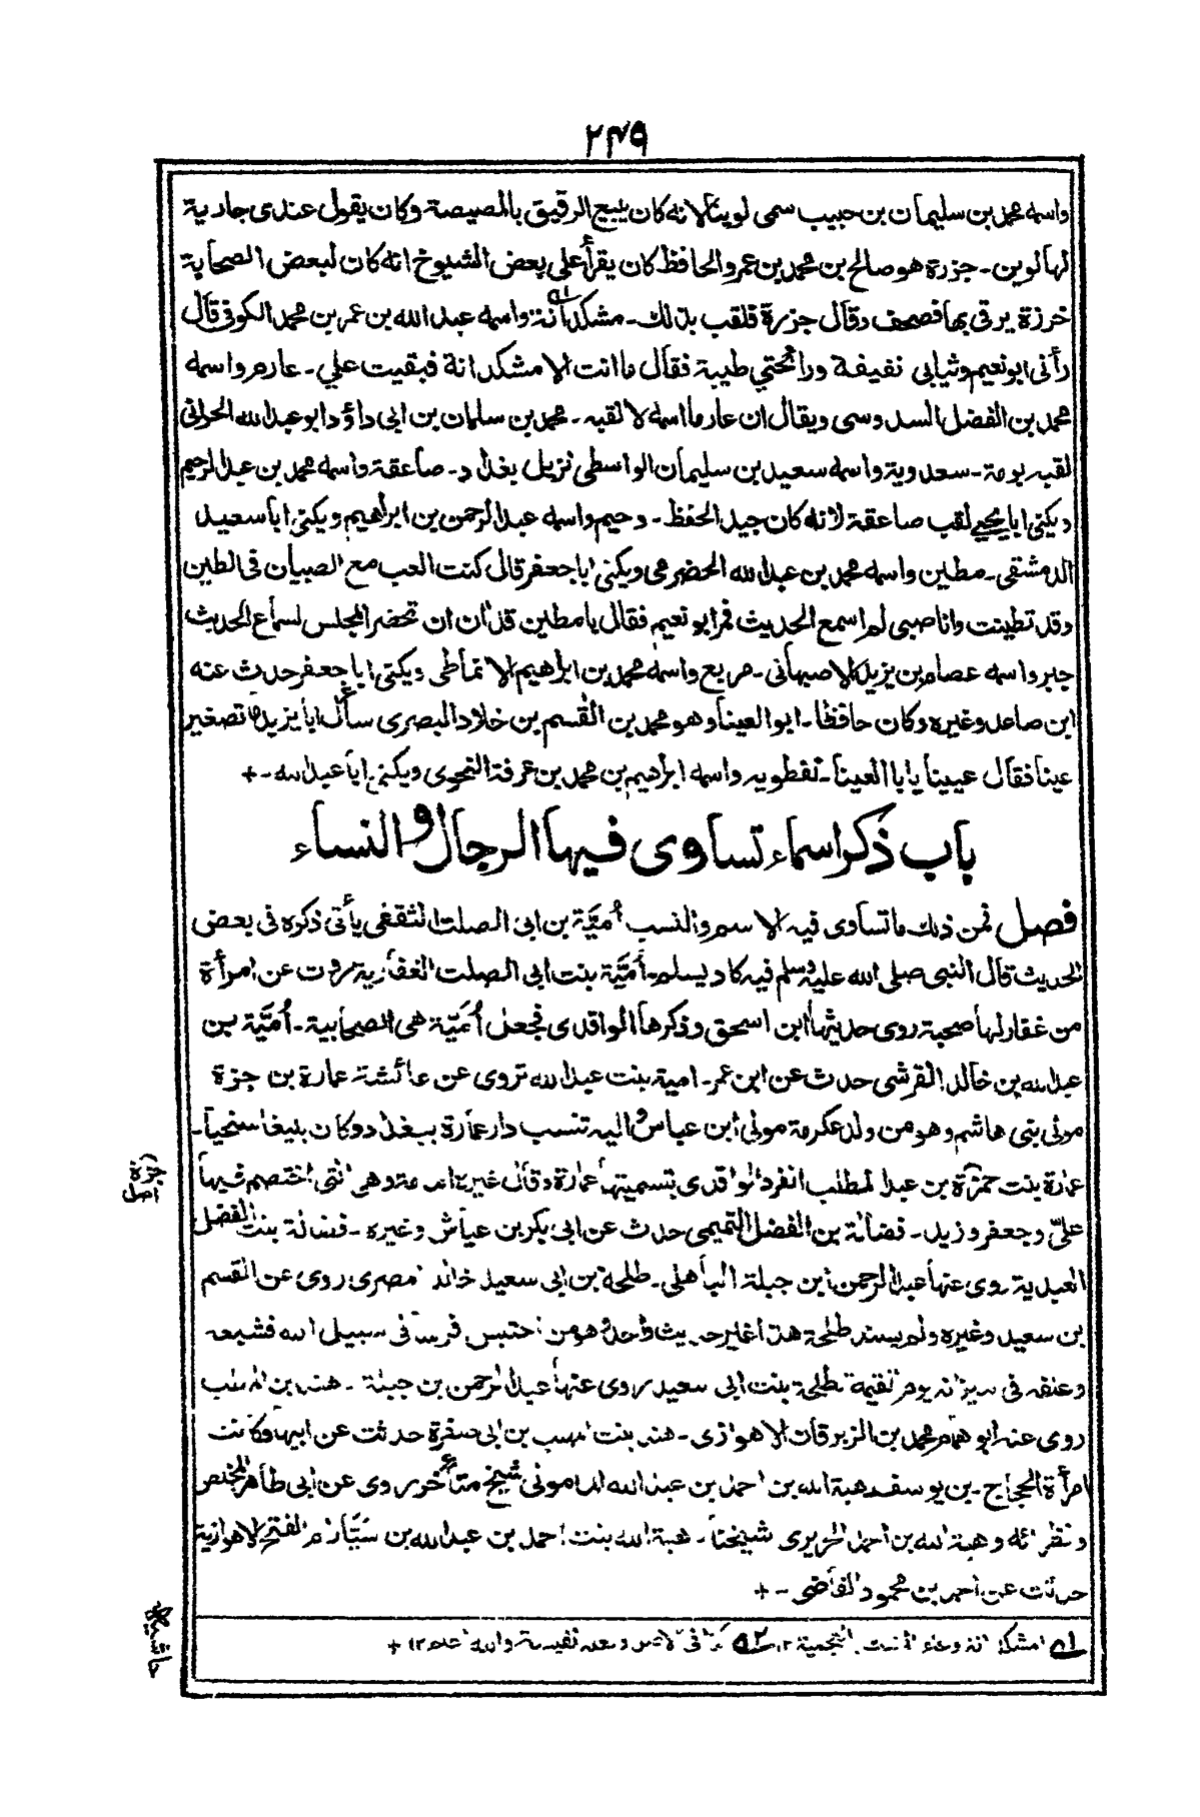 ٢٤٩
واسمه محمد بن سليمان بن حبيب سمى لوينا لانه كان يبيع الرقيق بالمصيصة وكان يقول عندى جارية
لها لوين ـ جزرة هو صالح بن محمد بن عمرو الحافظ كان يقرأ على بعض الشيوخ انه كان لبعض الصحابة
خرزة يرقى بها فصحف وقال جزرة فلقب بذلك ـ مشكدانة واسمه عبد الله بن عمر بن محمد الكوفى قال
رأنى ابو نعيم وثيابى نفيفة ورائحتي طيبة فقال ما انت الا مشكدانة فبقيت علي ـ عارم واسمه
محمد بن الفضل السدوسى ويقال ان عارما اسمه لا لقبه ـ محمد بن سلمان بن ابى داؤد ابو عبد الله الحرانى
لقبه بومة ـ سعدوية واسمه سعيد بن سليمان الواسطى نزيل بغداد ـ صاعقة واسمه محمد بن عبد الرحيم
ويكنى ابا يحيى لقب صاعقة لانه كان جيد الحفظ ـ دحيم واسمه عبد الرحمن بن ابراهيم ويكنى ابا سعيد
الدمشقى ـ مطين واسمه محمد بن عبد الله الحضرمى ويكنى ابا جعفر قال كنت العب مع الصبيان فى الطين
وقد تطينت وانا صبى لم اسمع الحديث فمر ابو نعيم فقال يا مطين قد أن ان تحضر المجلس لسماع الحديث
جبر واسمه عصام بن يزيد الاصبهانى ـ مربع واسمه محمد بن ابراهيم الانماطى ويكنى ابا جعفر حدث عنه
ابن صاعد وغيره وكان حافظا ـ ابو العينا وهو محمد بن القسم بن خلاد البصرى سأل ابا يزيد ما تصغير
عينا فقال عيينا يا با العينا ـ نفطويه واسمه ابراهيم بن محمد بن عرفة النحوى ويكنى ابا عبد الله ـ +
باب ذكر اسماء تساوى فيها الرجال و النساء
فصل فمن ذلك ما تساوى فيه الاسم والنسب أُمَيَّة بن ابى الصلت الثقفى يأتى ذكره فى بعض
الحديث قال النبى صلى الله عليه وسلم فيه كاد يسلم ـ أمَيَّة بنت ابى الصلت الغفارية روت عن امرأة
من غفار لها صحبة روى حديثها ابن اسحق وذكرها الواقدى فجعل أُمَيَّة هى الصحابية ـ أُمَيَّة بن
عبد الله بن خالد القرشى حدث عن ابن عمر ـ امية بنت عبد الله تروى عن عائشة عمارة بن جزة
مولى بنى هاشم وهو من ولد عكرمة مولى ابن عباس واليه تنسب دار عمارة ببغداد وكان بليغا سخيا ـ
عمارة بنت حمزة بن عبد المطلب انفرد الواقدى بتسميتها عمارة وقال غيره امامة وهى التى اختصم فيها
علىّ وجعفر وزيد ـ فضالة بن الفضل التميمى حدث عن ابى بكر بن عياش وغيره ـ فضالة بنت الفضل
العبدية روى عنها عبد الرحمن ابن جبلة الباهلى ـ طلحة بن ابى سعيد خالد مصرى روى عن القسم
بن سعيد وغيره ولم يسند طلحة هذا غير حديث واحد وهو من احتبس فرسا فى سبيل الله فشبعه
وعلفه فى ميزانه يوم القيمة طلحة بنت ابى سعيد روى عنها عبد الرحمن بن جبلة ـ هند بن المهلب
روى عنه ابو همام محمد بن الزبرقان الاهوازى ـ هند بنت المهلب بن ابى صفرة حدثت عن ابيها وكانت
امرأة الحجاج ـ بن يوسف هبة الله بن احمد بن عبد الله المامونى شيخ متأخر روى عن ابى طاهر المخلص
ونظرائه وهبة الله بن احمد الحريرى شيخنا ـ هبة الله بنت احمد بن عبد الله بن الفتح الاهوازية
حدثت عن احمد بن محمود القاضى ـ +
جزة اصل
حاشيه